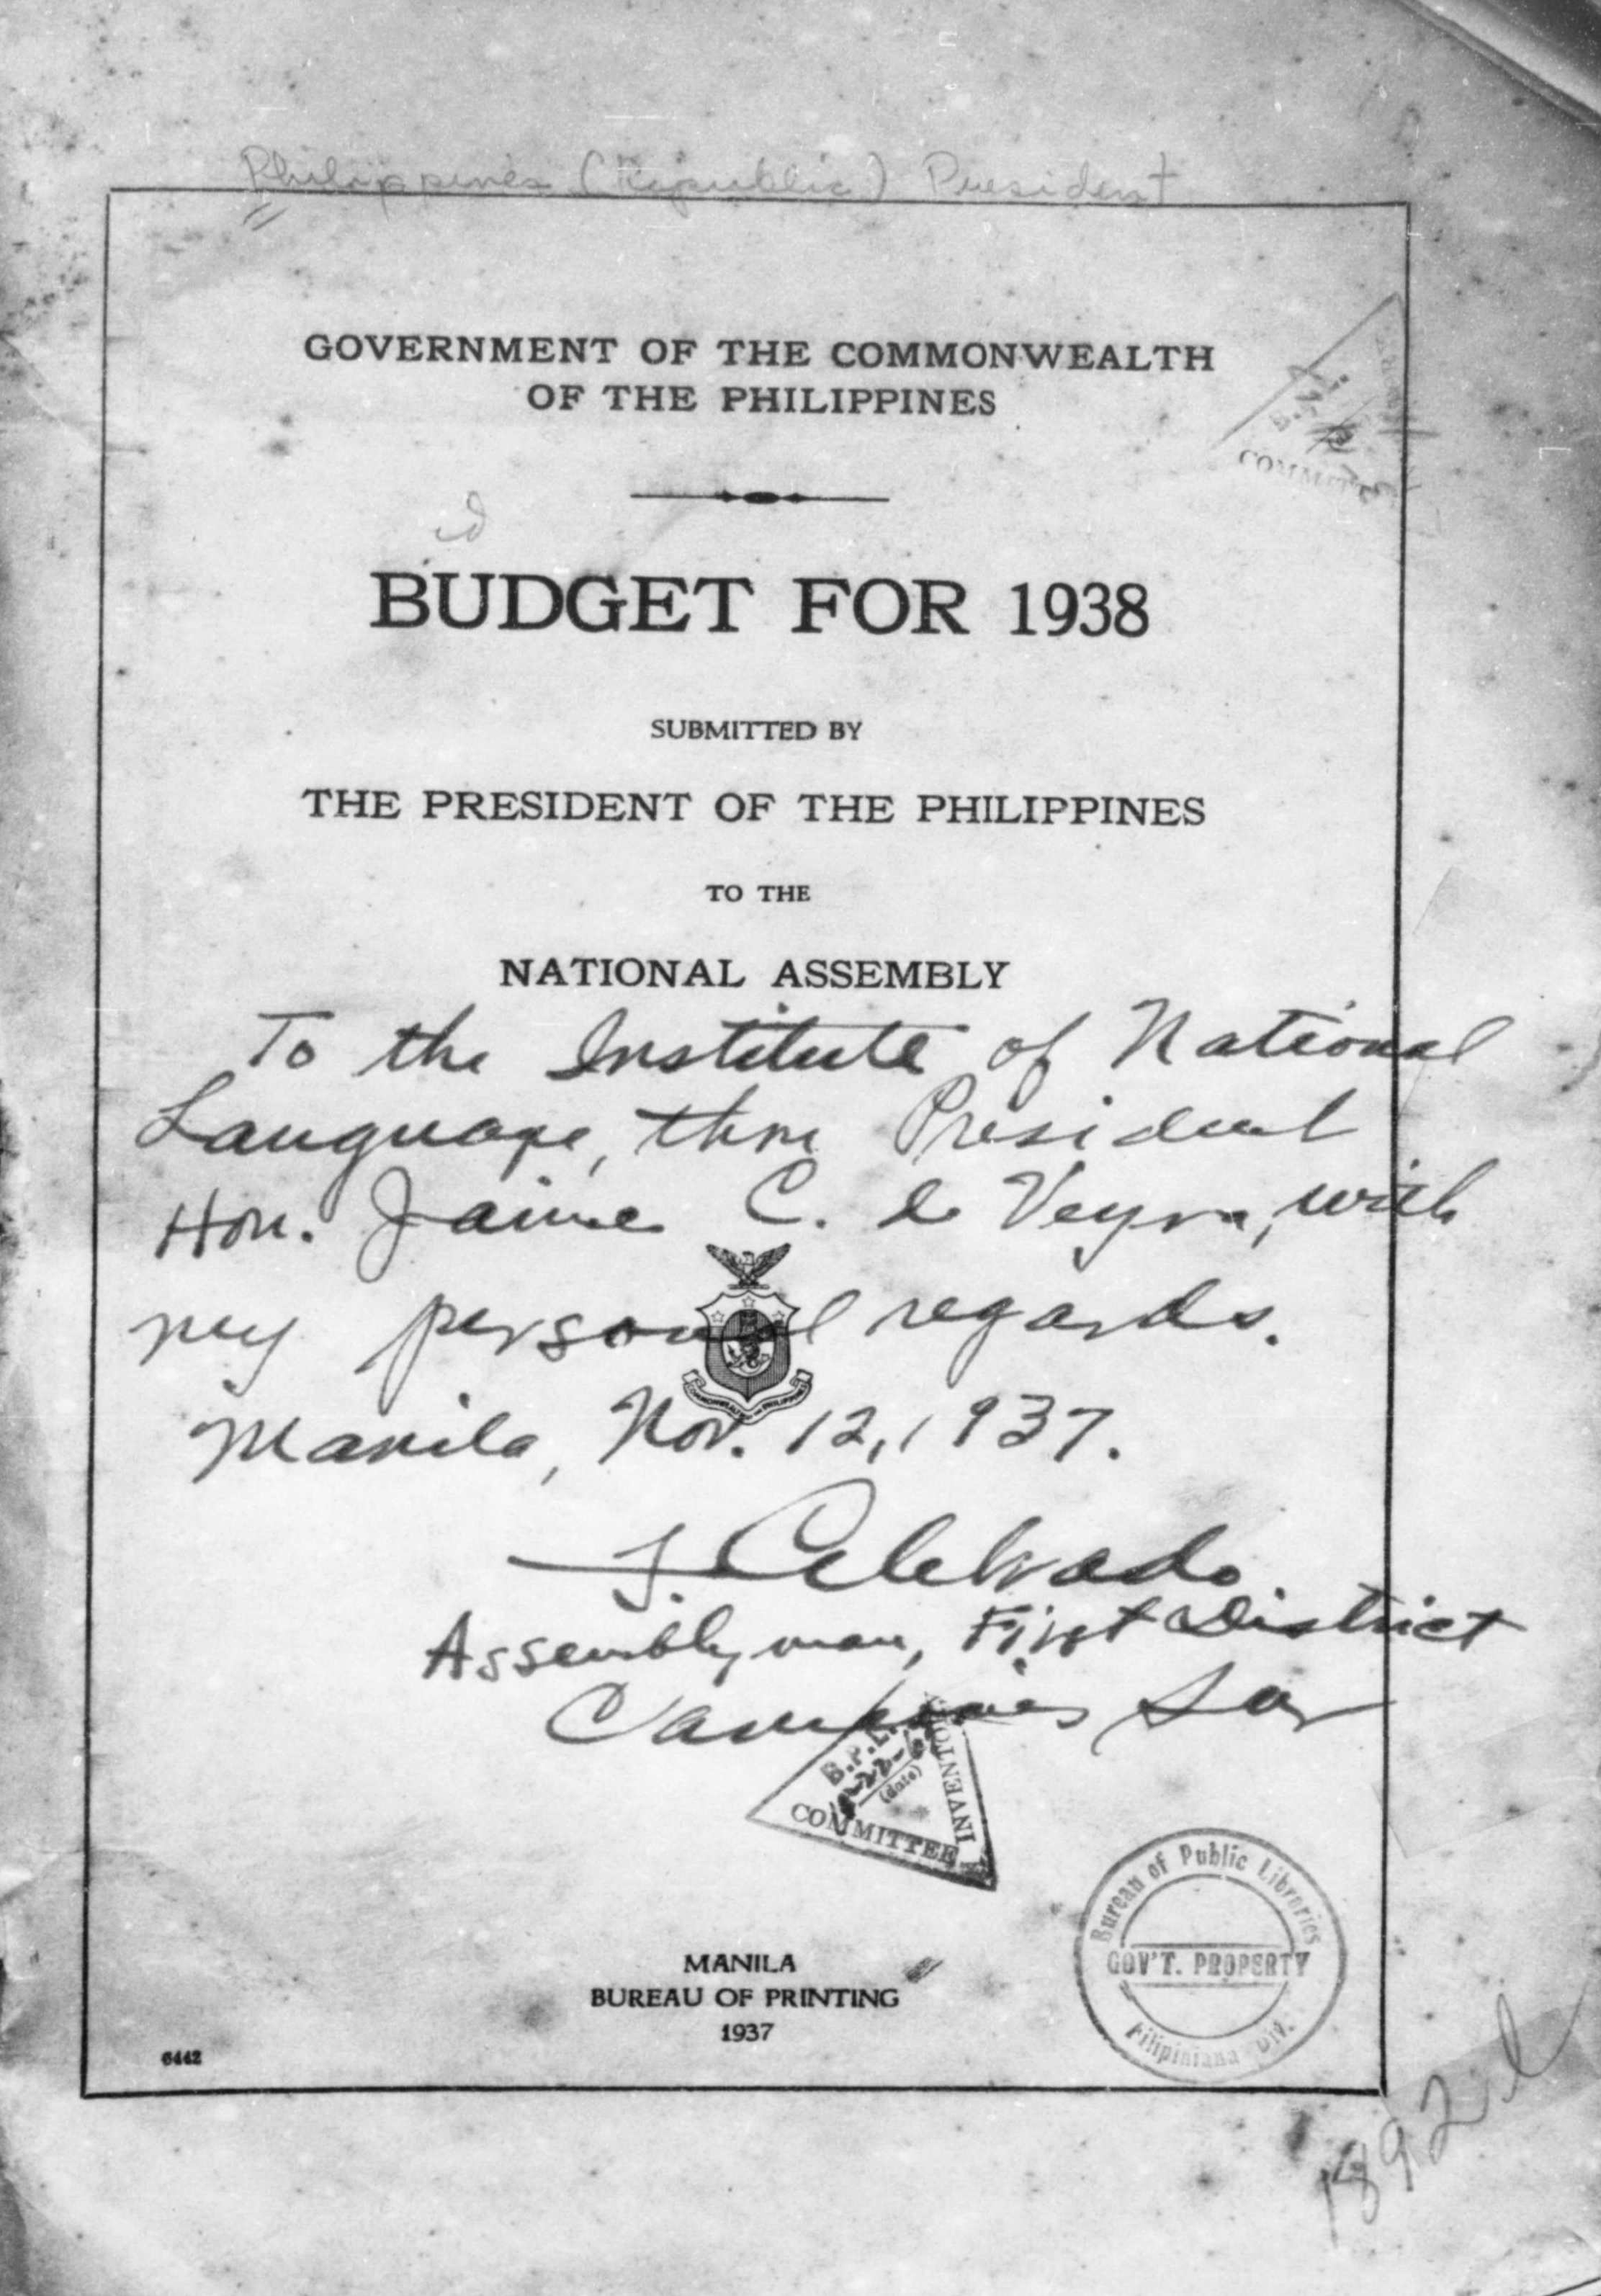 Philippines (Republic) President
GOVERNMENT OF THE COMMONWEALTH
OF THE PHILIPPINES
COMMITTE
BUDGET FOR 1938
SUBMITTED BY
THE PRESIDENT OF THE PHILIPPINES
TO THE
NATIONAL ASSEMBLY
To the Institute of National
Language, thru President
Hon. Jaime C. de Veyra, with
my personal regards.
COMMONWEALTH OF THE PHILIPPINES
Manila, Nov. 12, 1937.
Assemblyman, First District
Camarines Sur
B.P.L.
(date)
INVENTORY
COMMITTEE
Bureau of Public Libraries
GOV'T. PROPERTY
Filipiniana Div.
MANILA
BUREAU OF PRINTING
1937
6442